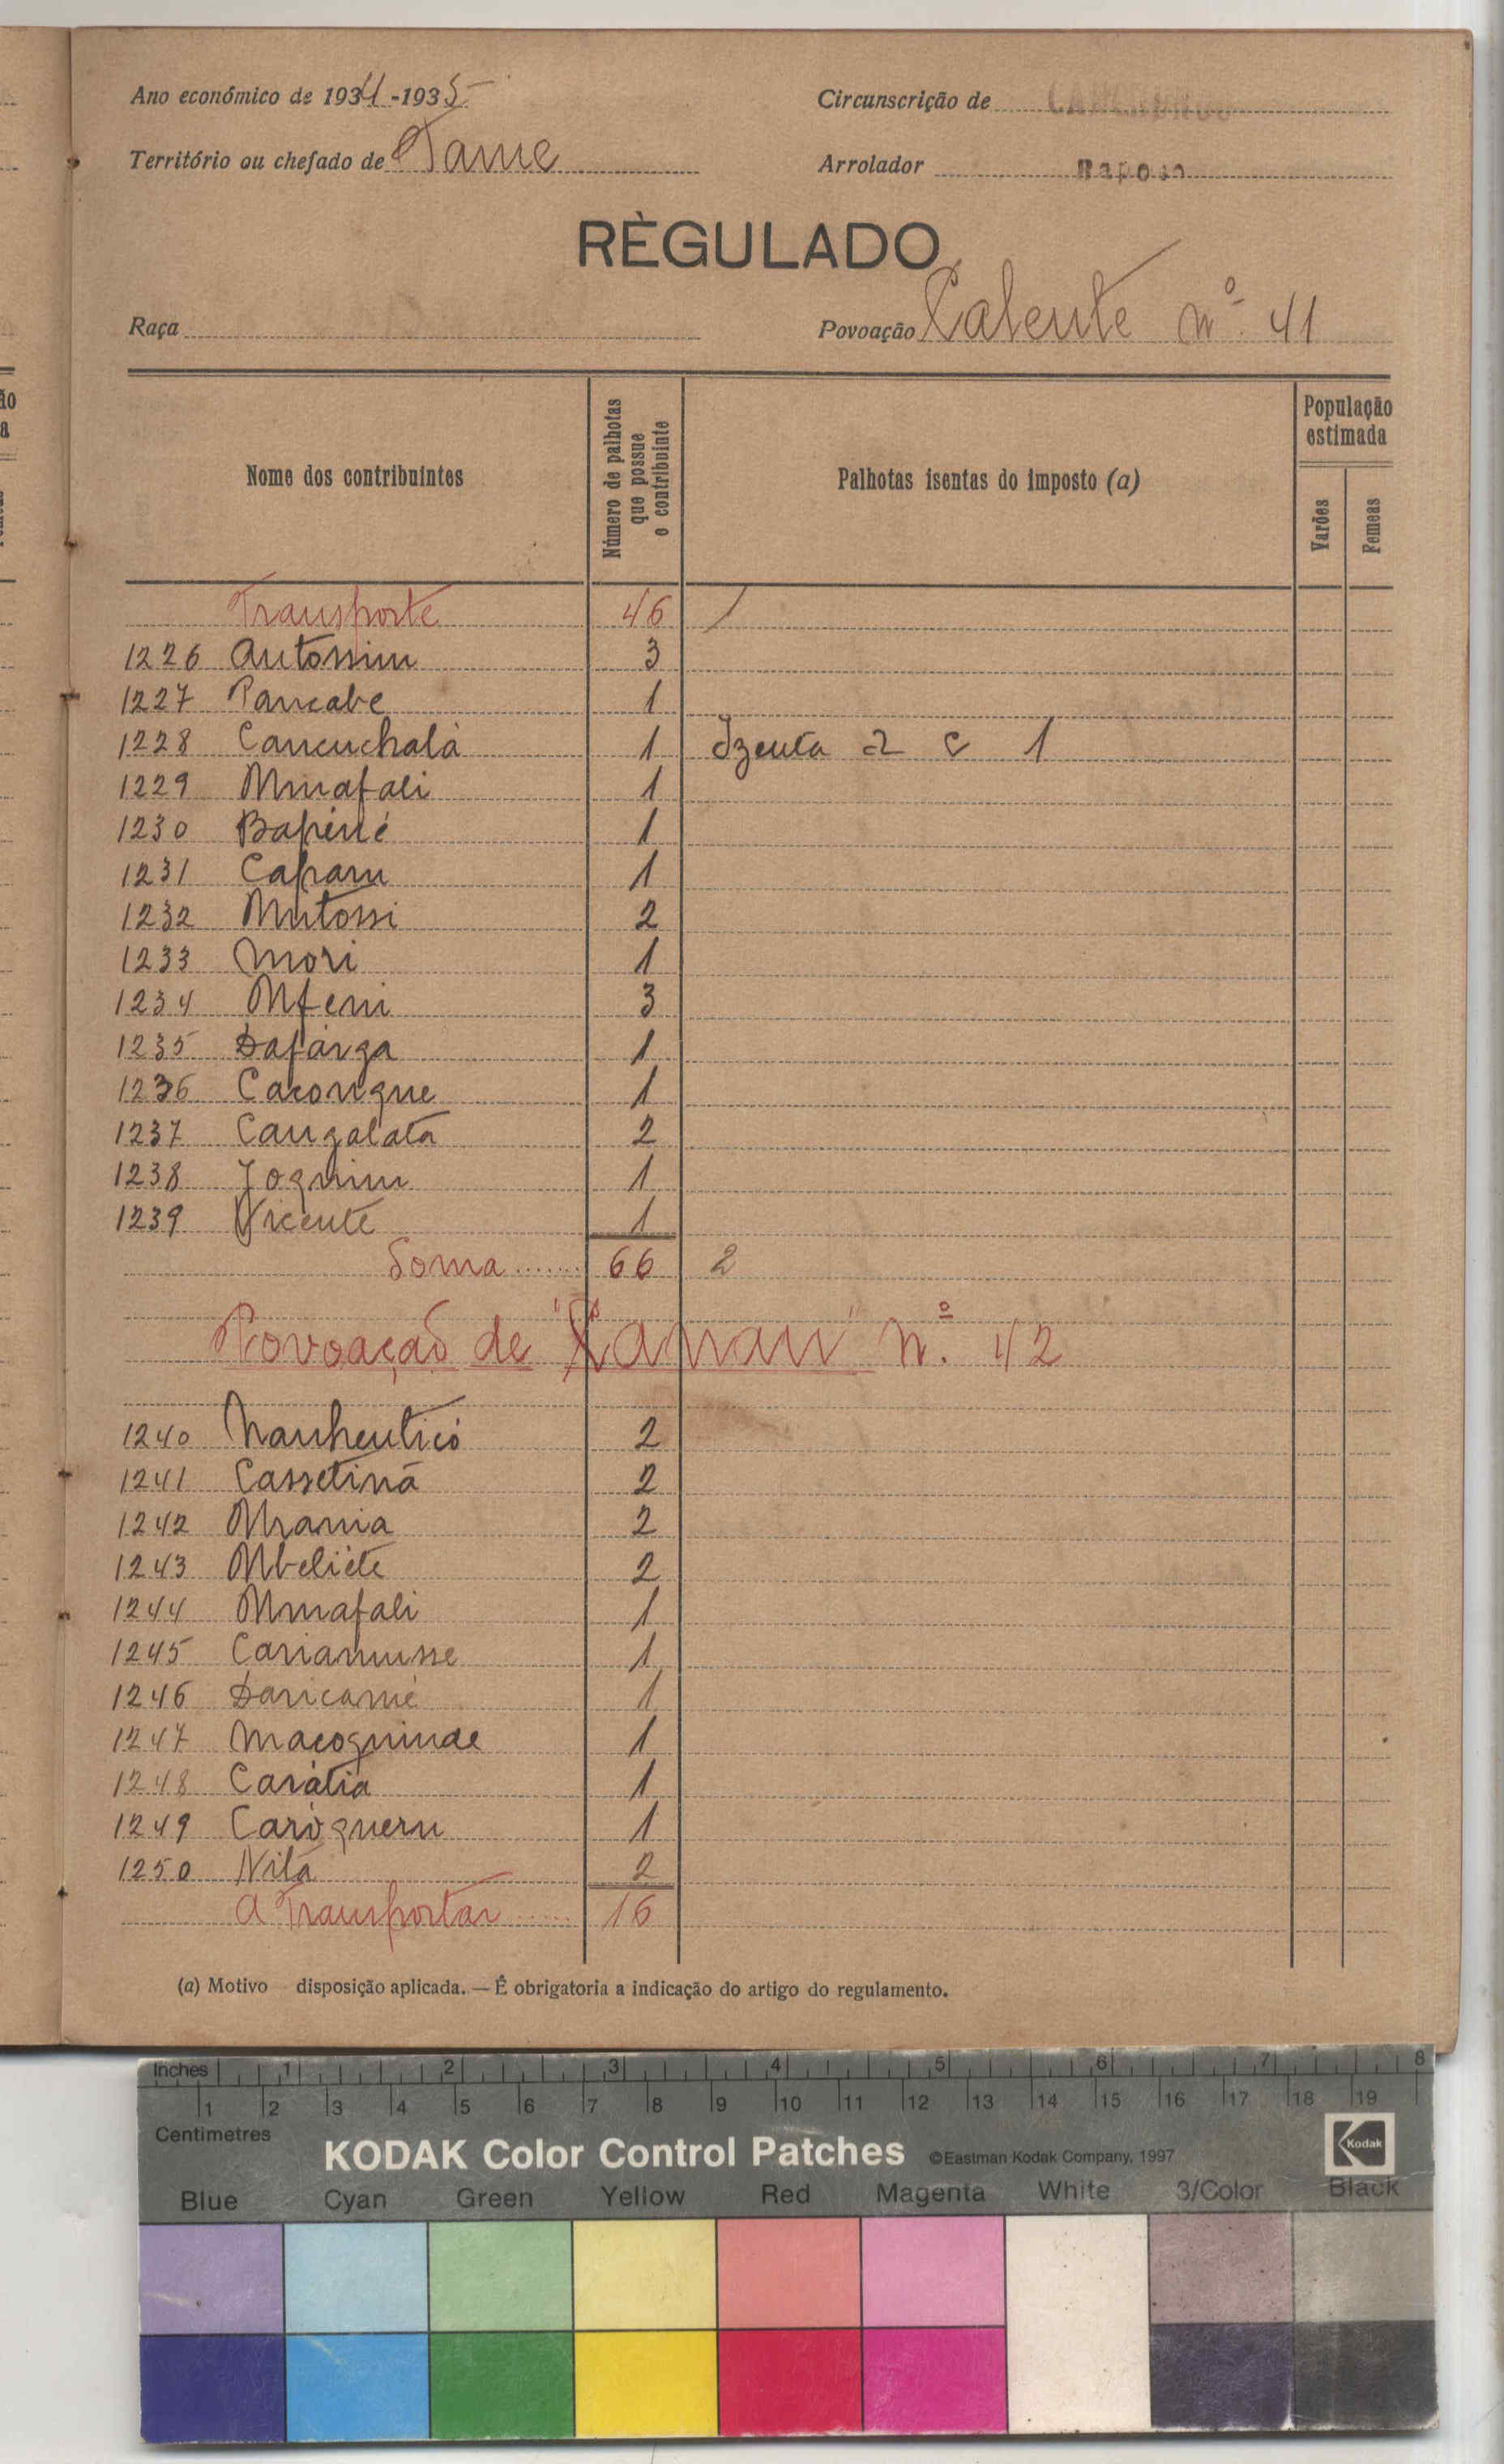 Ano económico de 1934-1935
Circunscrição de
Território ou chefado de Tame
Arrolador Raposo
RÈGULADO
Raça
Povoação Calente nº 41
Nome dos contribuintes
Número de palhotas que possue o contribuinte
Palhotas isentas do imposto (a)
População estimada
Varões
Femeas
Transporte 46 1
1226 Antossim 3
1227 Pancabe 1
1228 Cancuchalá 1 Izenta a 2 c 1
1229 Mmafali 1
1230 Bapinlé 1
1231 Caparu 1
1232 Mutossi 2
1233 Mori 1
1234 Mfeni 3
1235 Dafánga 1
1236 Cacongue 1
1237 Cangalatā 2
1238 Joquim 1
1239 Vicente 1
Soma ....... 66 2
Povoação de "Canau" nº. 42
1240 Nanhenticó 2
1241 Cassetinā 2
1242 Mrania 2
1243 Mbeliéte 2
1244 Mmafali 1
1245 Cariamusse 1
1246 Daricamé 1
1247 Macoquinde 1
1248 Carátia 1
1249 Caróqueru 1
1250 Nitá 2
A Transportar ..... 16
(a) Motivo disposição aplicada. — É obrigatoria a indicação do artigo do regulamento.
Inches 1 2 3 4 5 6 7 8
1 2 3 4 5 6 7 8 9 10 11 12 13 14 15 16 17 18 19
Centimetres
KODAK Color Control Patches ©Eastman Kodak Company, 1997
Kodak
Blue Cyan Green Yellow Red Magenta White 3/Color Black